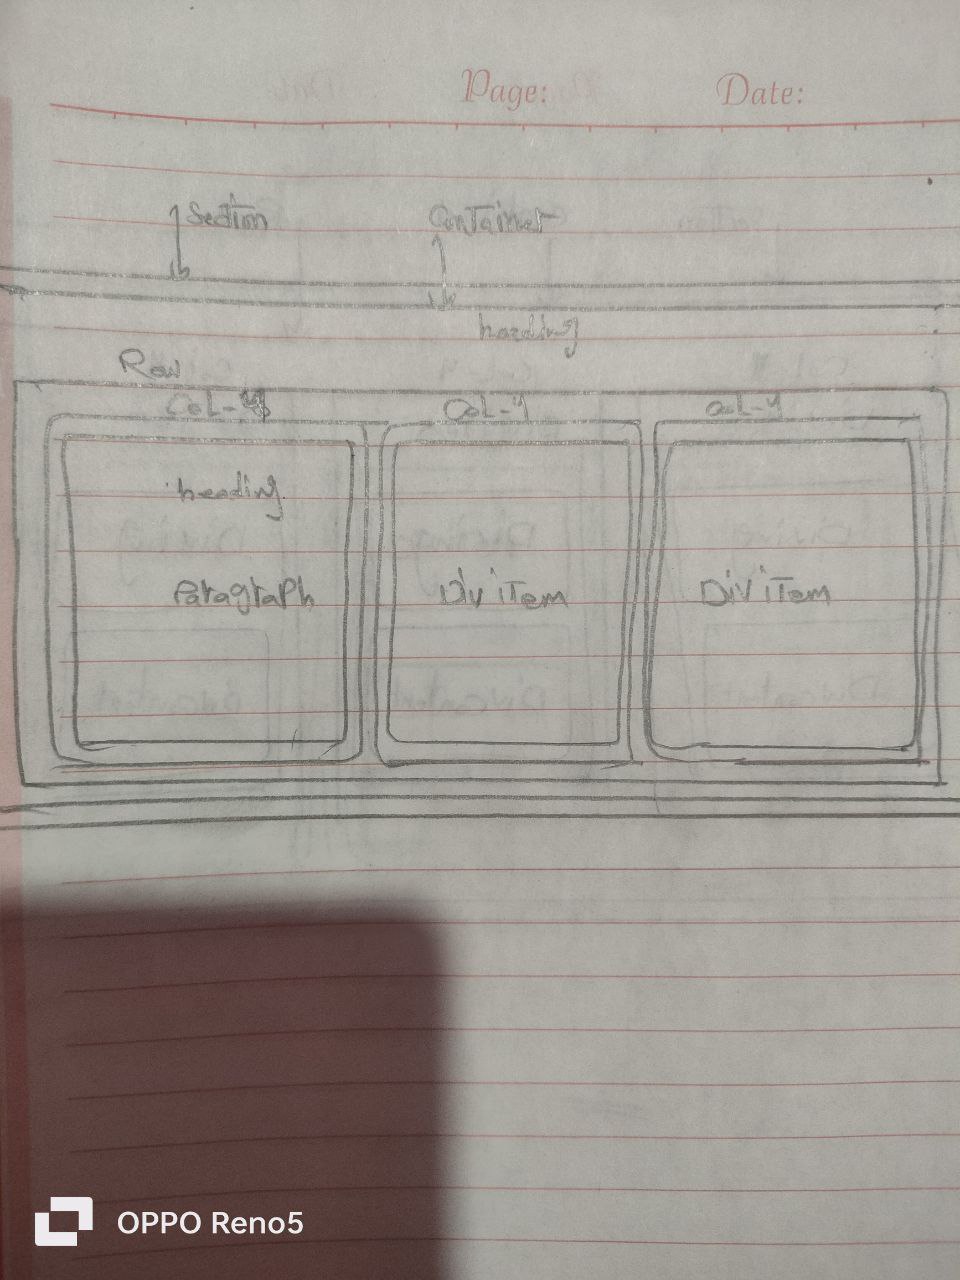 Page: Date:
Section Container
heading
Row
Col-4 Col-4 Col-4
heading
Paragraph Div iTem Div iTem
OPPO Reno5